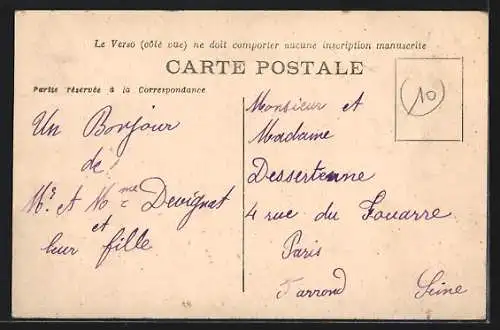 Le Verso (côté vue) ne doit comporter aucune inscription manuscrite
CARTE POSTALE
Partie réservée à la Correspondance
Un Bonjour
de
Mr et Mme Devignat
et
leur fille
10
Monsieur et
Madame
Dessertenne
4 rue du Fouarre
Paris
Seine